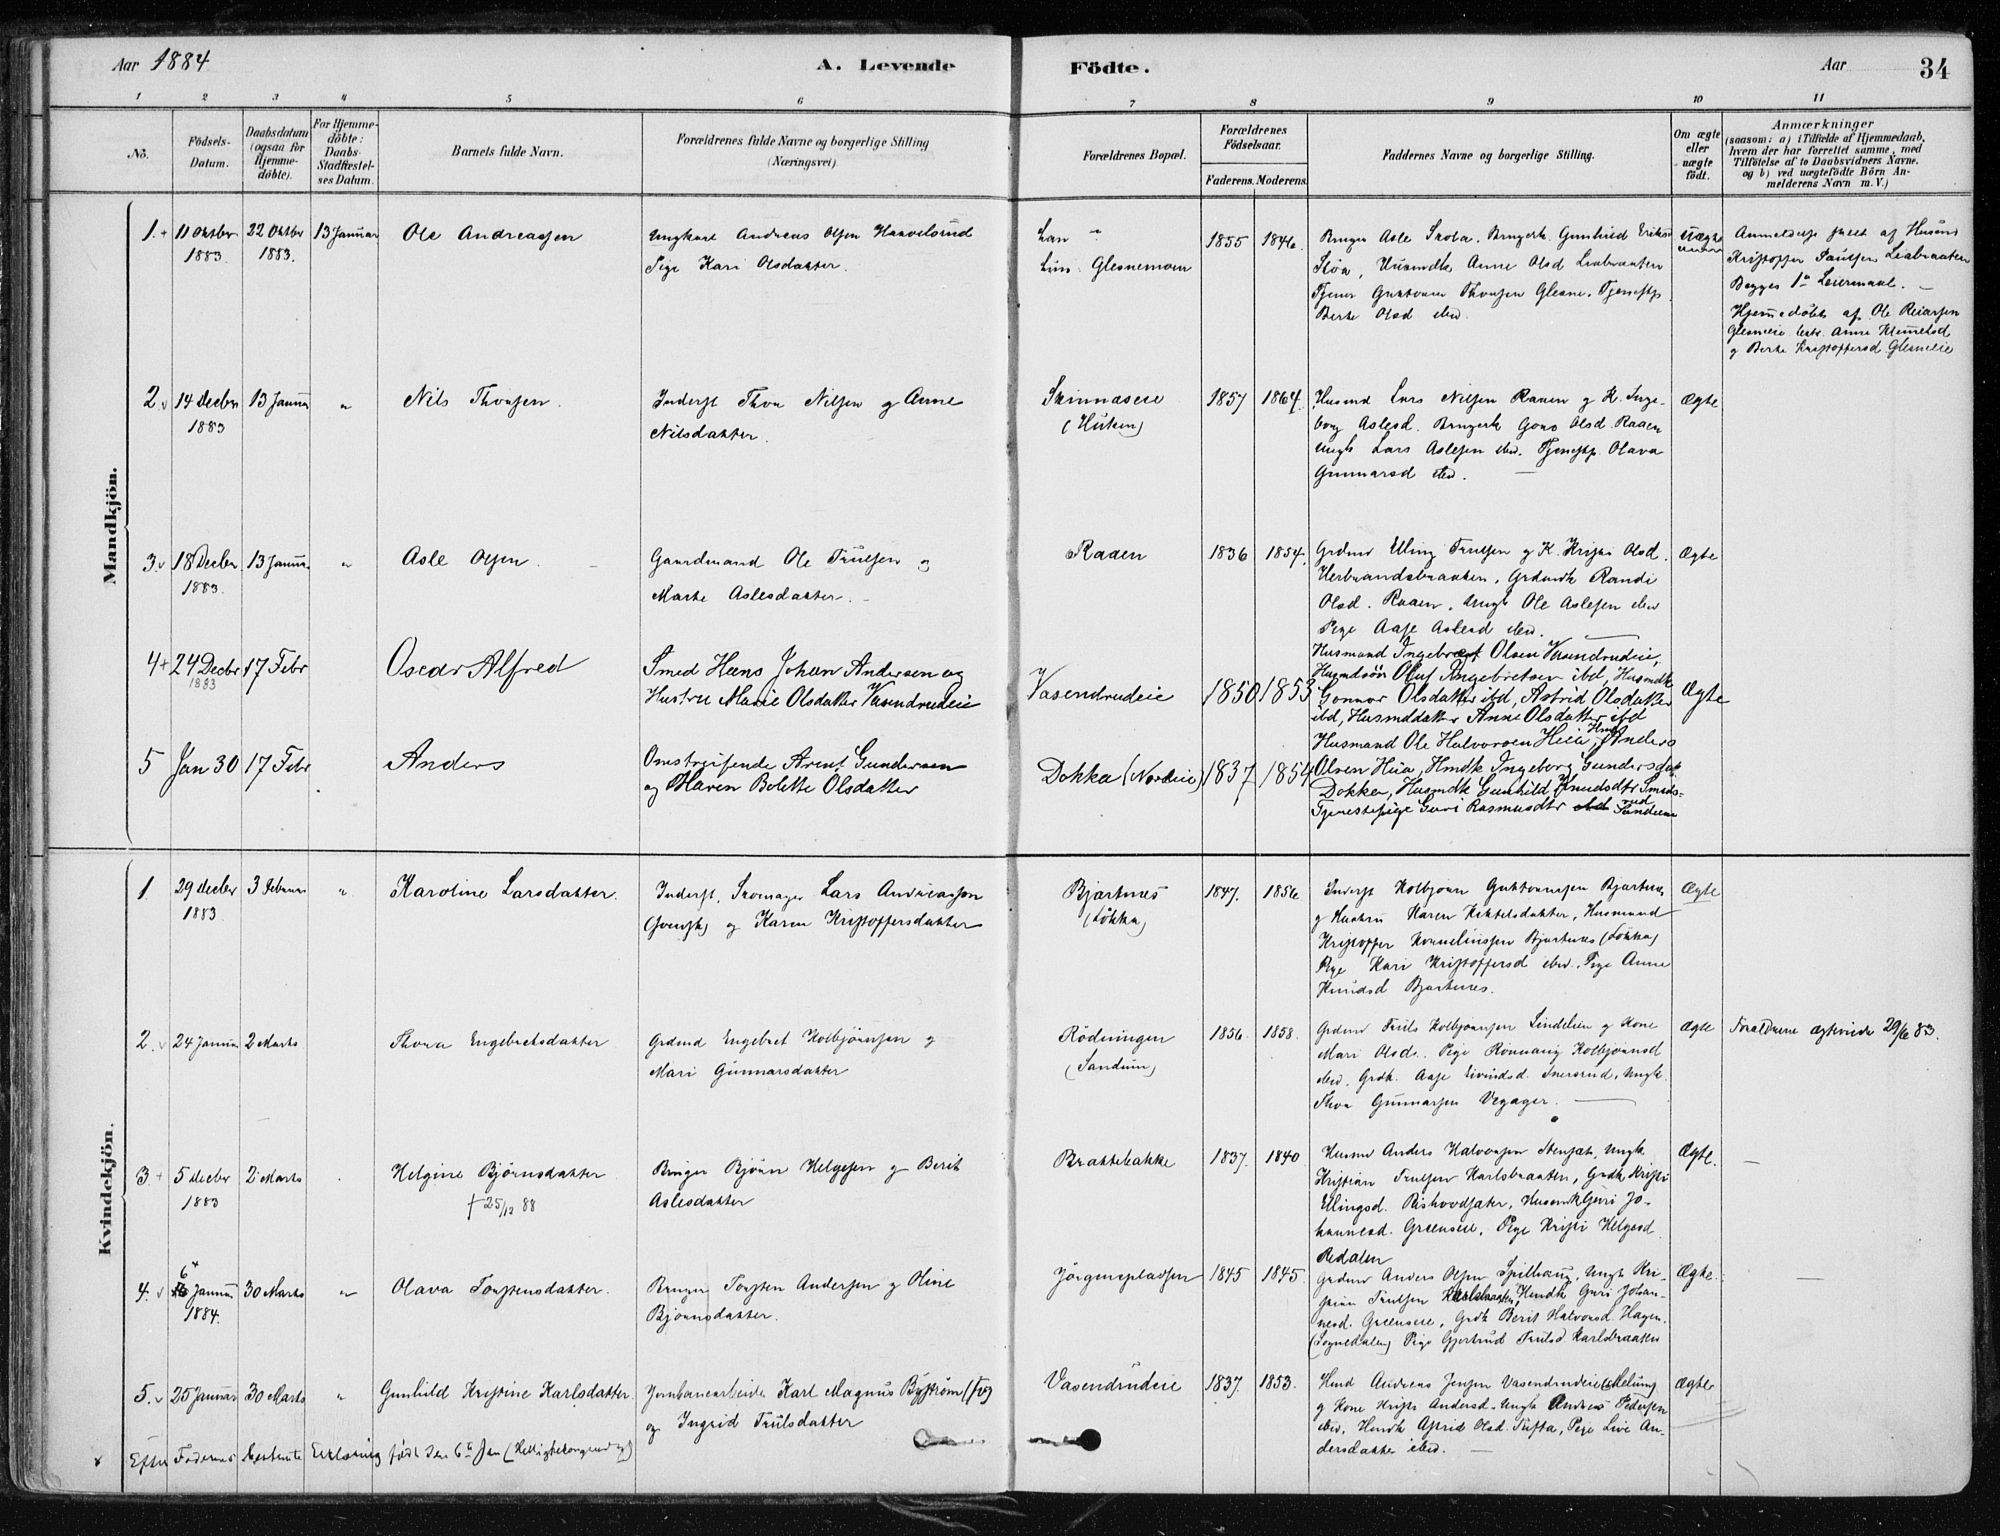 Aar 1884 A. Levende Födte. Aar 34
1 2 3 4 5 6 7 8 9 10 11
No.
Födsels-Datum.
Daabsdatum (ogsaa for Hjemme-döbte).
For Hjemme-döbte: Daabs-Stadfæstel-ses Datum.
Barnets fulde Navn.
Forældrenes fulde Navne og borgerlige Stilling (Næringsvei).
Forældrenes Bopæl.
Forældrenes Födselsaar.
Faderens. Moderens.
Faddernes Navne og borgerlige Stilling.
Om ægte eller uægte födt.
Anmærkninger
(saasom: a) i Tilfælde af Hjemmedaab, hvem der har forrettet samme, med Tilföielse af to Daabsvidners Navne. og b) ved uægtefödte Börn An-melderens Navn m. V.)
Mandkjön.
1. 11 Oktbr 1883 22 Oktbr 1883. 13 Januar Ole Andreassen
Ungkarl Andreas Olsen Haavelsrud
Pige Kari Olsdatter.
Glesnemoen 1855 1846.
Anne Olsd Liabraaten
Glesne. Tjenestep.
Berte Olsd ibid.
Uægte
Anmeldelse skeet af Husmd
Kristoffer Paulsen Liabraaten
Begges 1ste Leiermaal.
Hjemmedöbt af Ole Reiarsen
og Berte Kristoffersd Glesneeie
2 14 Decbr 1883 13 Januar " Nils Thorsen.
Inderst Thor Nilsen og Anne
Nilsdatter.
(Hulken) 1857 1864.
Husmd Lars Nilsen Raaen og K. Inge-
borg Aslesd. Brugerk Goro Olsd. Raaen
Ungk Lars Aslesen ibid. Tjenestep. Olava
Gunnarsd ibid.
Ægte
3. 18 Decbr 1883. 13 Januar " Asle Olsen.
Gaardmand Ole Trulsen og
Marte Aslesdatter.
Raaen 1836 1854.
Grdmd Elling Trulsen og K. Kristi Olsd.
Herbrandsbraaten, Grdmdk Randi
Olsd. Raaen, Ungk Ole Aslesen ibid
Pige Aase Aslesd ibid.
Ægte
4 24 Decbr 1883 17 Febr Oscar Alfred
Smed Hans Johan Andersen og
Hustru Marie Olsdatter Vasendrudeie
Vasendrudeie 1850 1853
Husmand Ingebret Olsen Vasendrudeie,
Husmdsön Oluf Ingebretsen ibd, Husmdk
Gonnor Olsdatter ibd, Astrid Olsdatter
ibd, Husmddatter Anne Olsdatter ibd
Ægte
5 Jan 30 17 Febr Anders
Omstreifende Arent Gundersen
og Maren Bolette Olsdatter
Dokka (Nordeie) 1837 1854
Husmand Ole Halvorsen Hieie, Anders
Olsen Hia, Hmdk Ingeborg Gundersdat
Dokken, Husmdk Gunhild Knudsdtr Smeds-
rud
Tjenestepige Guri Rasmusdtr
Kvindekjön.
1. 29 decbr 1883. 3 Februar " Karoline Larsdatter.
Inderst, Skomager Lars Andreassen
(svensk) og Karen Kristoffersdatter
Bjertnes
(Lökka) 1847. 1856
Inderst Kolbjörn Guttormsen Bjertnes,
og Hustru Karen Kittelsdatter, Husmand
Kristoffer Korneliussen Bjertnes (Lökka)
Pige Kari Kristoffersd ibid. Pige Anne
Knudsd Bjertnes.
Ægte
2. 24 Januar 2 Marts Thora Engebretsdatter
Grdmd Engebret Kolbjörnsen og
Mari Gunnarsdatter
Rödningen
(Sandum) 1856. 1858.
Grdmd Truls Kolbjörnsen Lindelien og Kone
Mari Olsd. Pige Rönnaug Kolbjörnsd
ibid. Grdk. Aase Eivindsd. Ungk.
Thor Gunnarsen Vegager.
Ægte
Forældrene ægteviede 29/6 83.
3 5 decbr 1883 2 Marts Helgine Björnsdatter
† 25/12 88
Bruger Björn Helgesen og Berit
Aslesdatter
Brattebakke 1837. 1840
Husmd Anders Halvorsen Stensæt, Ungk
Kristian Trulsen Karlsbraaten, Grdk Kristi
Ellingsd. Rishovdsæter, Husmdk Guri Jo-
hannesd. Greenseie, Pige Kristi Helgesd
Redalen
Ægte. —
4. 6 Januar 1884. 30 Marts " Olava Torstensdatter.
Bruger Torsten Andersen og Oline
Björnsdatter.
Jörgenspladsen 1845 1845.
Grdmd Anders Olsen Spilhaug, Ungk Kri-
stian Trulsen Karlsbraaten, Hmdk Guri Johan-
nesd. Greenseie, Grdk Berit Halvorsd. Hagen.
(Sognedalen) Pige Gjertrud Trulsd. Karlsbraaten
Ægte. —
5. 25 Januar 30 Marts " Gunhild Kristine Karlsdatter.
Jernbanearbeider Karl Magnus Byström (sv)
og Ingrid Trulsdatter
Vasendrudeie 1837. 1853.
Hmd Andreas Jensen Vasendrudeie
og Kone Kristi Andersd. Ungk Andreas Pedersen
ibid, Hmdk Astrid Olsd. Tufta, Pige Live An-
dersdatter ibid.
Ægte
Efter Faderens bestemte Erklæring født den 6te Jan (Helligtrekongersdag)